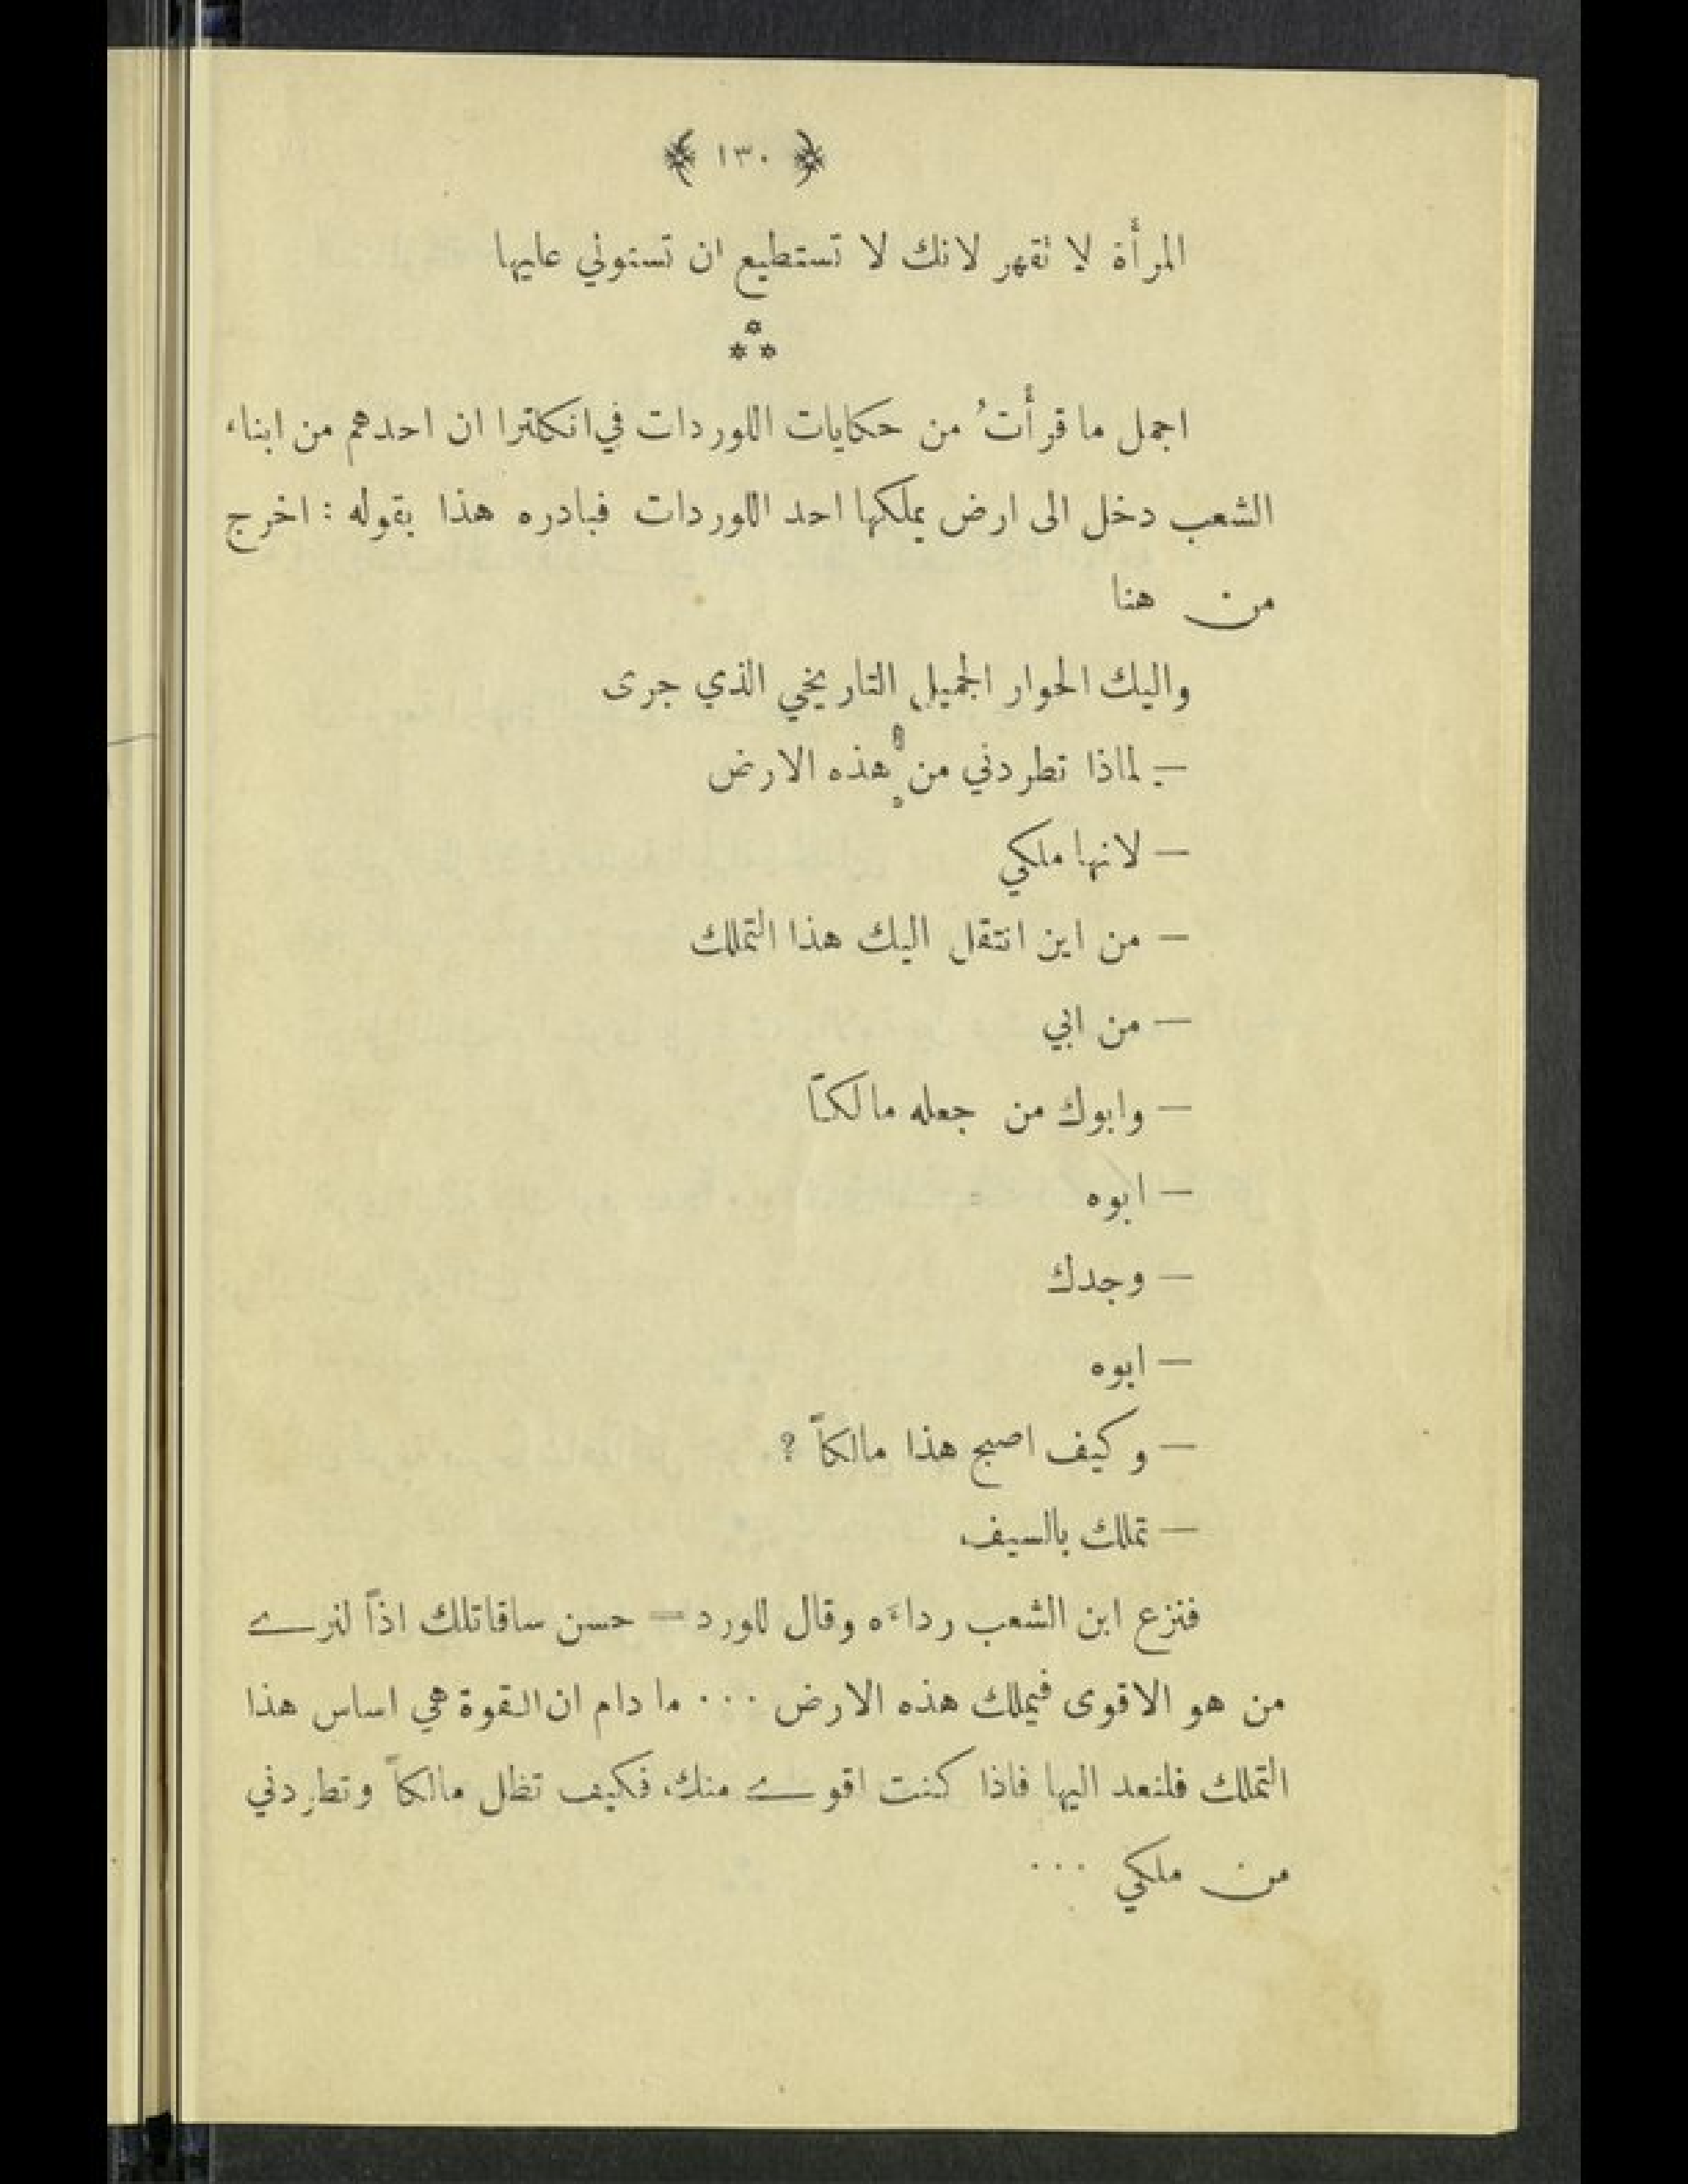 ﴿ ١٣٠ ﴾
المرأة لا تقهر لانك لا تستطيع ان تستولي عليها
***
اجمل ما قرأتُ من حكايات اللوردات في انكلترا ان احدهم من ابناء
الشعب دخل الى ارض يملكها احد اللوردات فبادره هذا بقوله : اخرج
من هنا
واليك الحوار الجميل التاريخي الذي جرى
— لماذا تطردني من هذه الارض
— لانها ملكي
— من اين انتقل اليك هذا التملك
— من ابي
— وابوك من جعله مالكاً
— ابوه
— وجدك
— ابوه
— وكيف اصبح هذا مالكاً ؟
— تملك بالسيف
فنزع ابن الشعب رداءَه وقال للورد — حسن ساقاتلك اذاً لنرى
من هو الاقوى فيملك هذه الارض ... ما دام ان القوة هي اساس هذا
التملك فلنعد اليها فاذا كنت اقوى منك، فكيف تظل مالكاً وتطردني
من ملكي ...